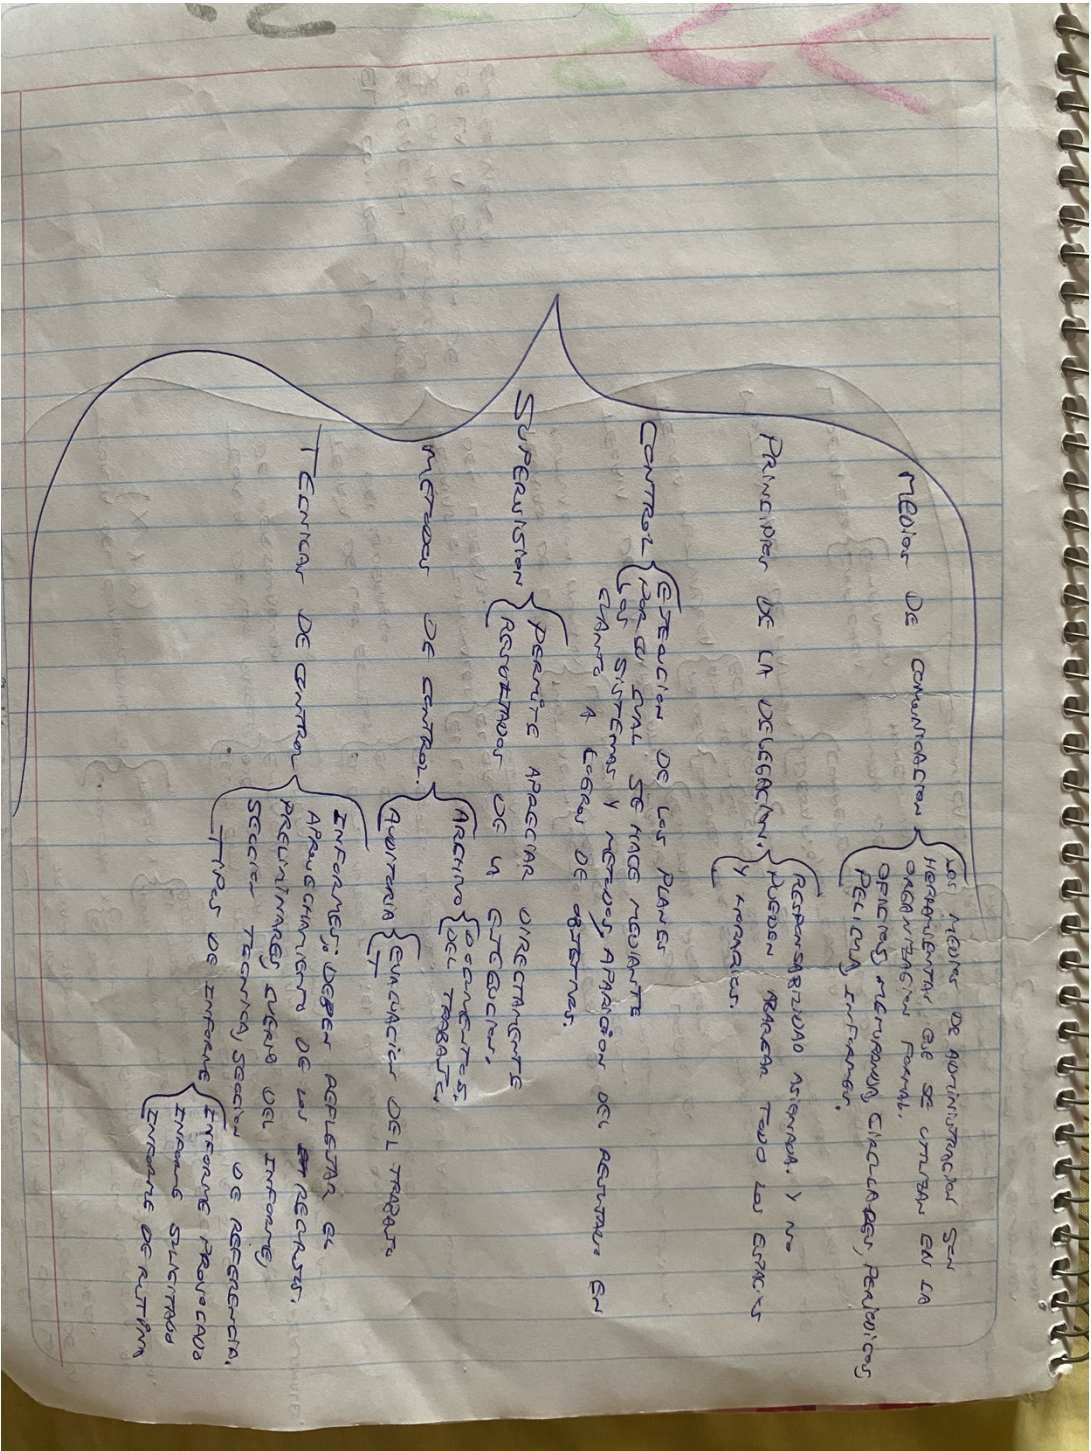 MEDIOS DE COMUNICACION
LOS MEDIOS DE ADMINISTRACION SON
HERRAMIENTAS QUE SE UTILIZAN EN LA
ORGANIZACION FORMAL.
OFICIOS, MEMORANDA, CIRCULARES, PERIODICOS
PELICULA, INFORMES.
PRINCIPIOS DE LA DELEGACION.
RESPONSABILIDAD ASIGNADA. Y NO
PUEDEN ABARCAR TODO LOS ESPACIOS
Y HORARIOS.
CONTROL
DE LOS PLANES
POR EL CUAL SE HACE MEDIANTE
LOS SISTEMAS Y METODOS, APARICION DEL RESULTADO EN
CUANTO A DE OBTETNOS.
SUPERVISION
PERMITE APRECIAR DIRECTAMENTE
RESULTADOS DE LA
METODOS DE CONTROL.
ARCHIVO
DOCUMENTOS.
DEL TRABAJO.
AUDITORIA
EVALUACION DEL TRABAJO
TECNICAS DE CONTROL
INFORMES: DEBEN REFLETAR EL
APROVECHAMIENTO DE LOS RECURSOS.
PRELIMINARES, CUERPO DEL INFORME,
SECCION TECNICA, SECCION DE REFERENCIA.
TIPOS DE INFORME
INFORME PROVOCADO
INFORME SOLICITADO
INFORME DE RUTINA